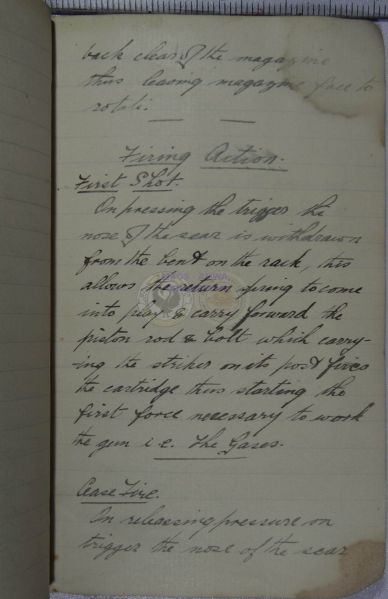 back clear of the magazine
thus leaving magazine free to
rotate.
Firing Action.
First Shot.
On pressing the trigger the
nose of the sear is withdrawn
from the bent on the rack, this
allows the return spring to come
into play & carry forward the
piston rod & bolt which carry-
ing the striker on its post fires
the cartridge thus starting the
first force necessary to work
the gun i.e. The Gases.
Cease Fire.
On releasing pressure on
trigger the nose of the sear